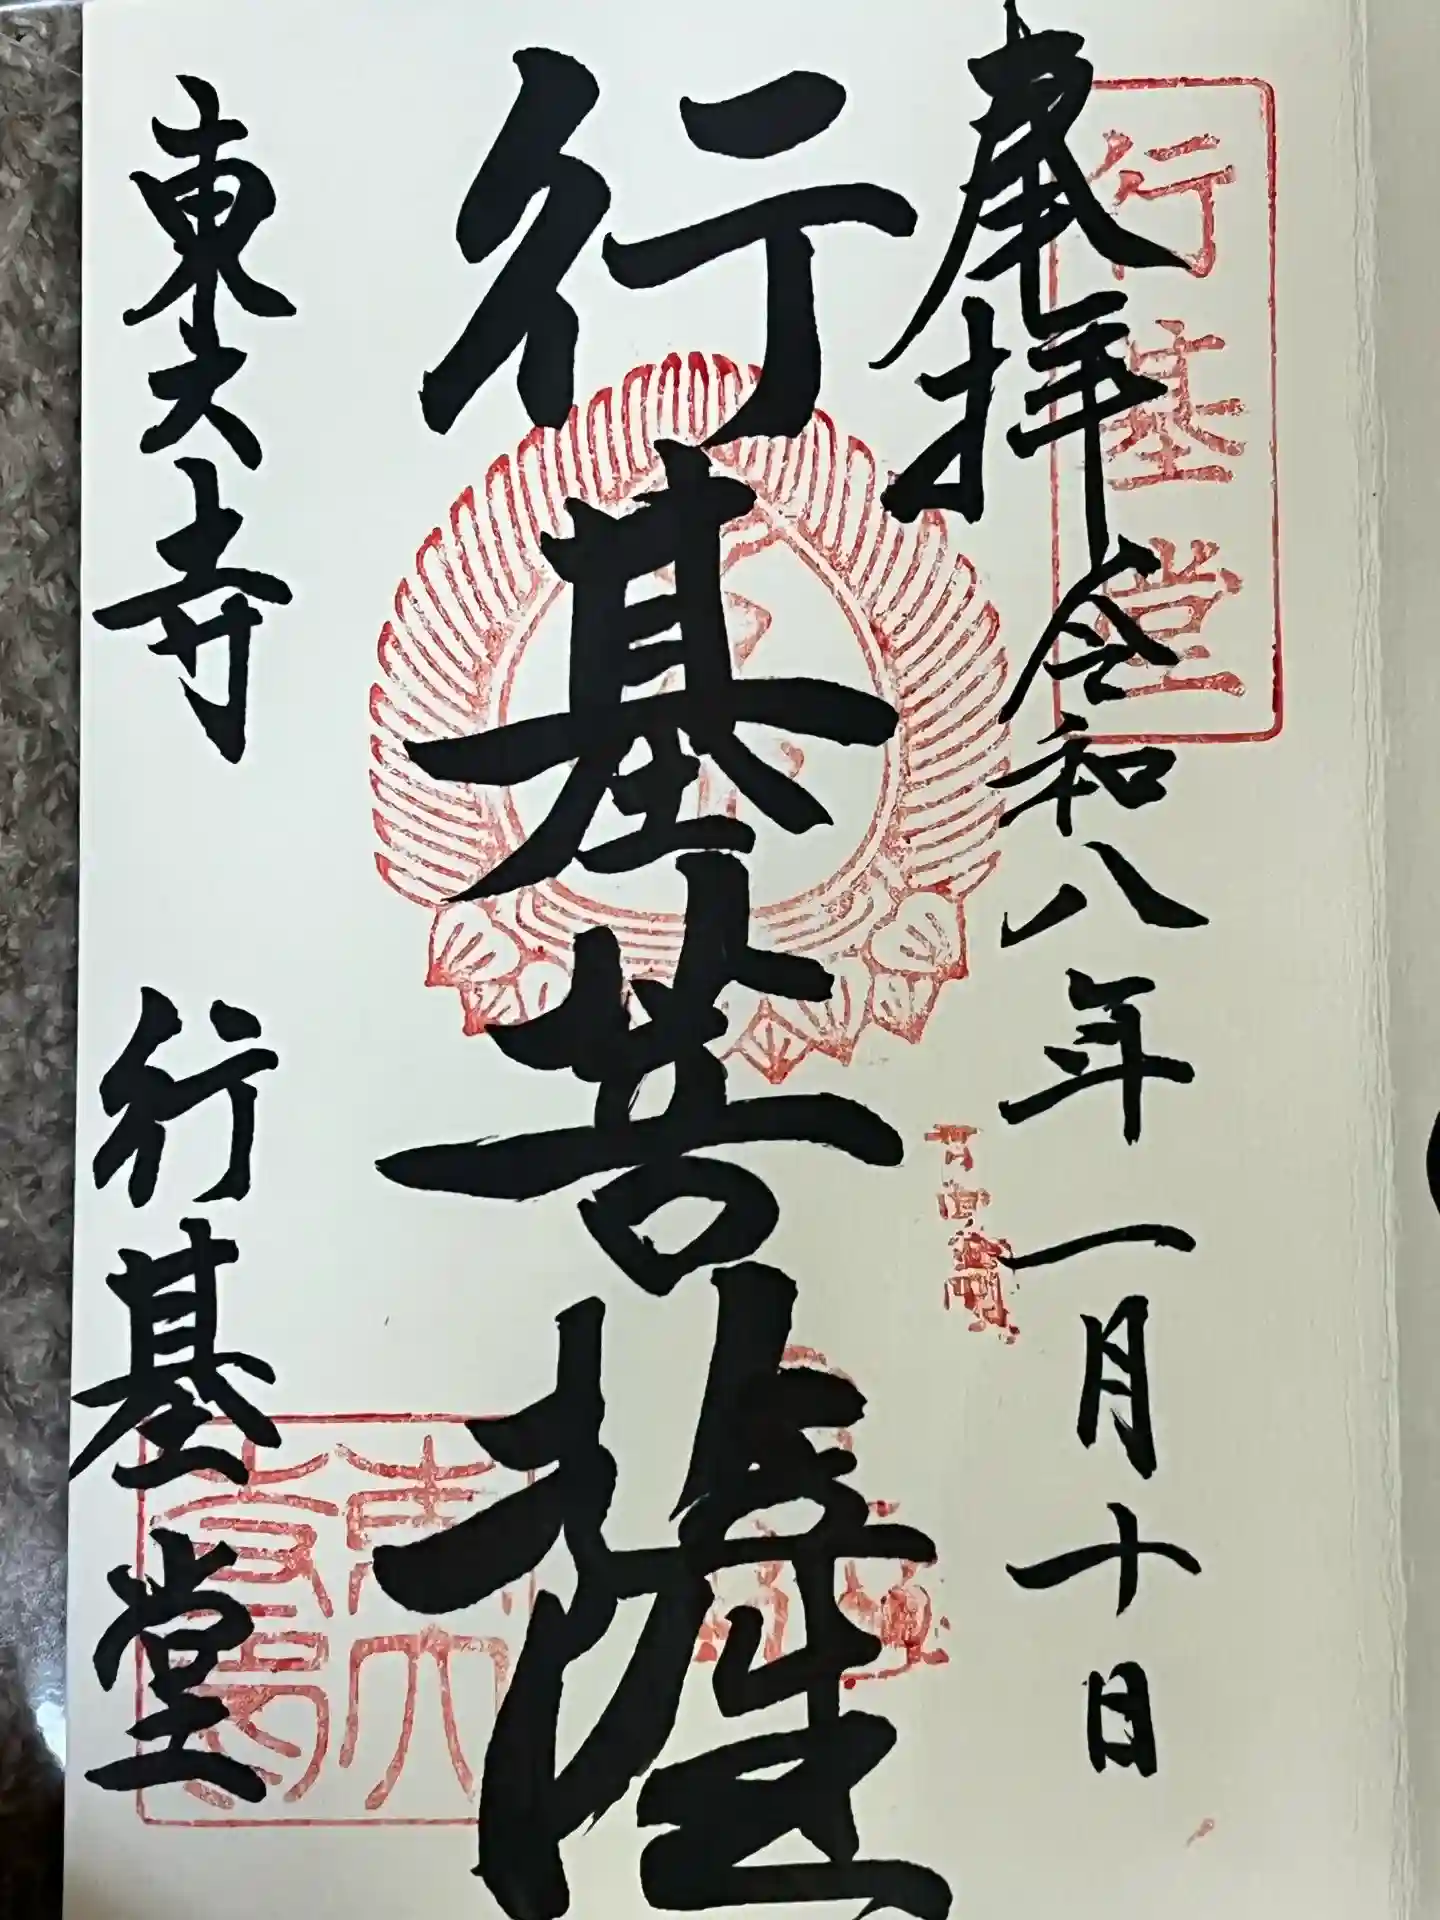 奉拝 令和八年一月十日
行基堂
行基菩薩
東大寺 行基堂
東大寺